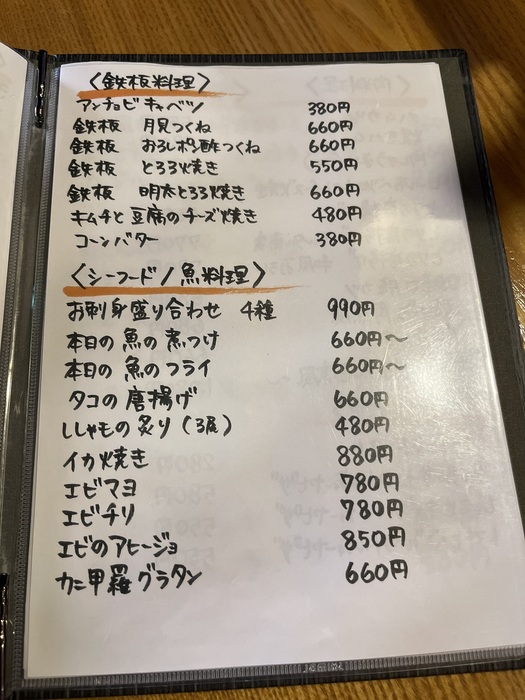 〈鉄板料理〉
アンチョビキャベツ 380円
鉄板 月見つくね 660円
鉄板 おろしポン酢つくね 660円
鉄板 とろろ焼き 550円
鉄板 明太とろろ焼き 660円
キムチと豆腐のチーズ焼き 480円
コーンバター 380円
〈シーフード/魚料理〉
お刺身盛り合わせ 4種 990円
本日の魚の煮つけ 660円〜
本日の魚のフライ 660円〜
タコの唐揚げ 660円
ししゃもの炙り(3尾) 480円
イカ焼き 880円
エビマヨ 780円
エビチリ 780円
エビのアヒージョ 850円
カニ甲羅グラタン 660円